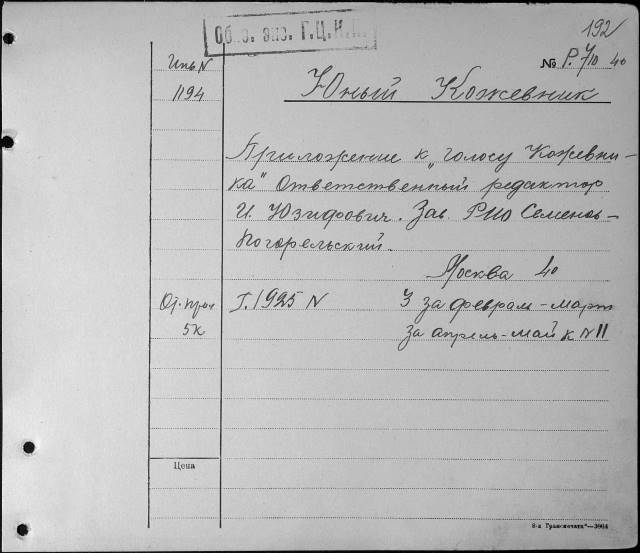 Обяз. экз. Г.Ц.К.П.
192
Инв N
№ Р. 7/10 40
1194
Юный Кожевник
Приложение к „голосу Кожевни-
ка" Ответственный редактор
И. Юзифович. Зав. РИО Семенов-
Погорельский.
Москва 40
От. прил
Г. 1925 N 3 за февраль-март
5к
за апрель-май к N 11
Цена
8-я „Транспечати"—3904